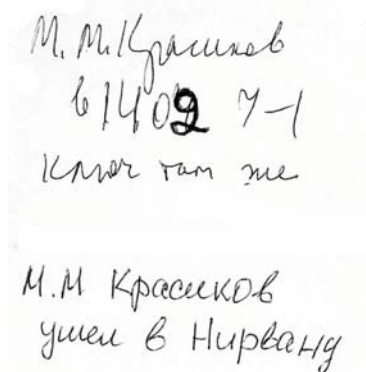 М. М. Красиков
в 1402 У-1
Ключ там же
М.М Красиков
ушел в Нирвану